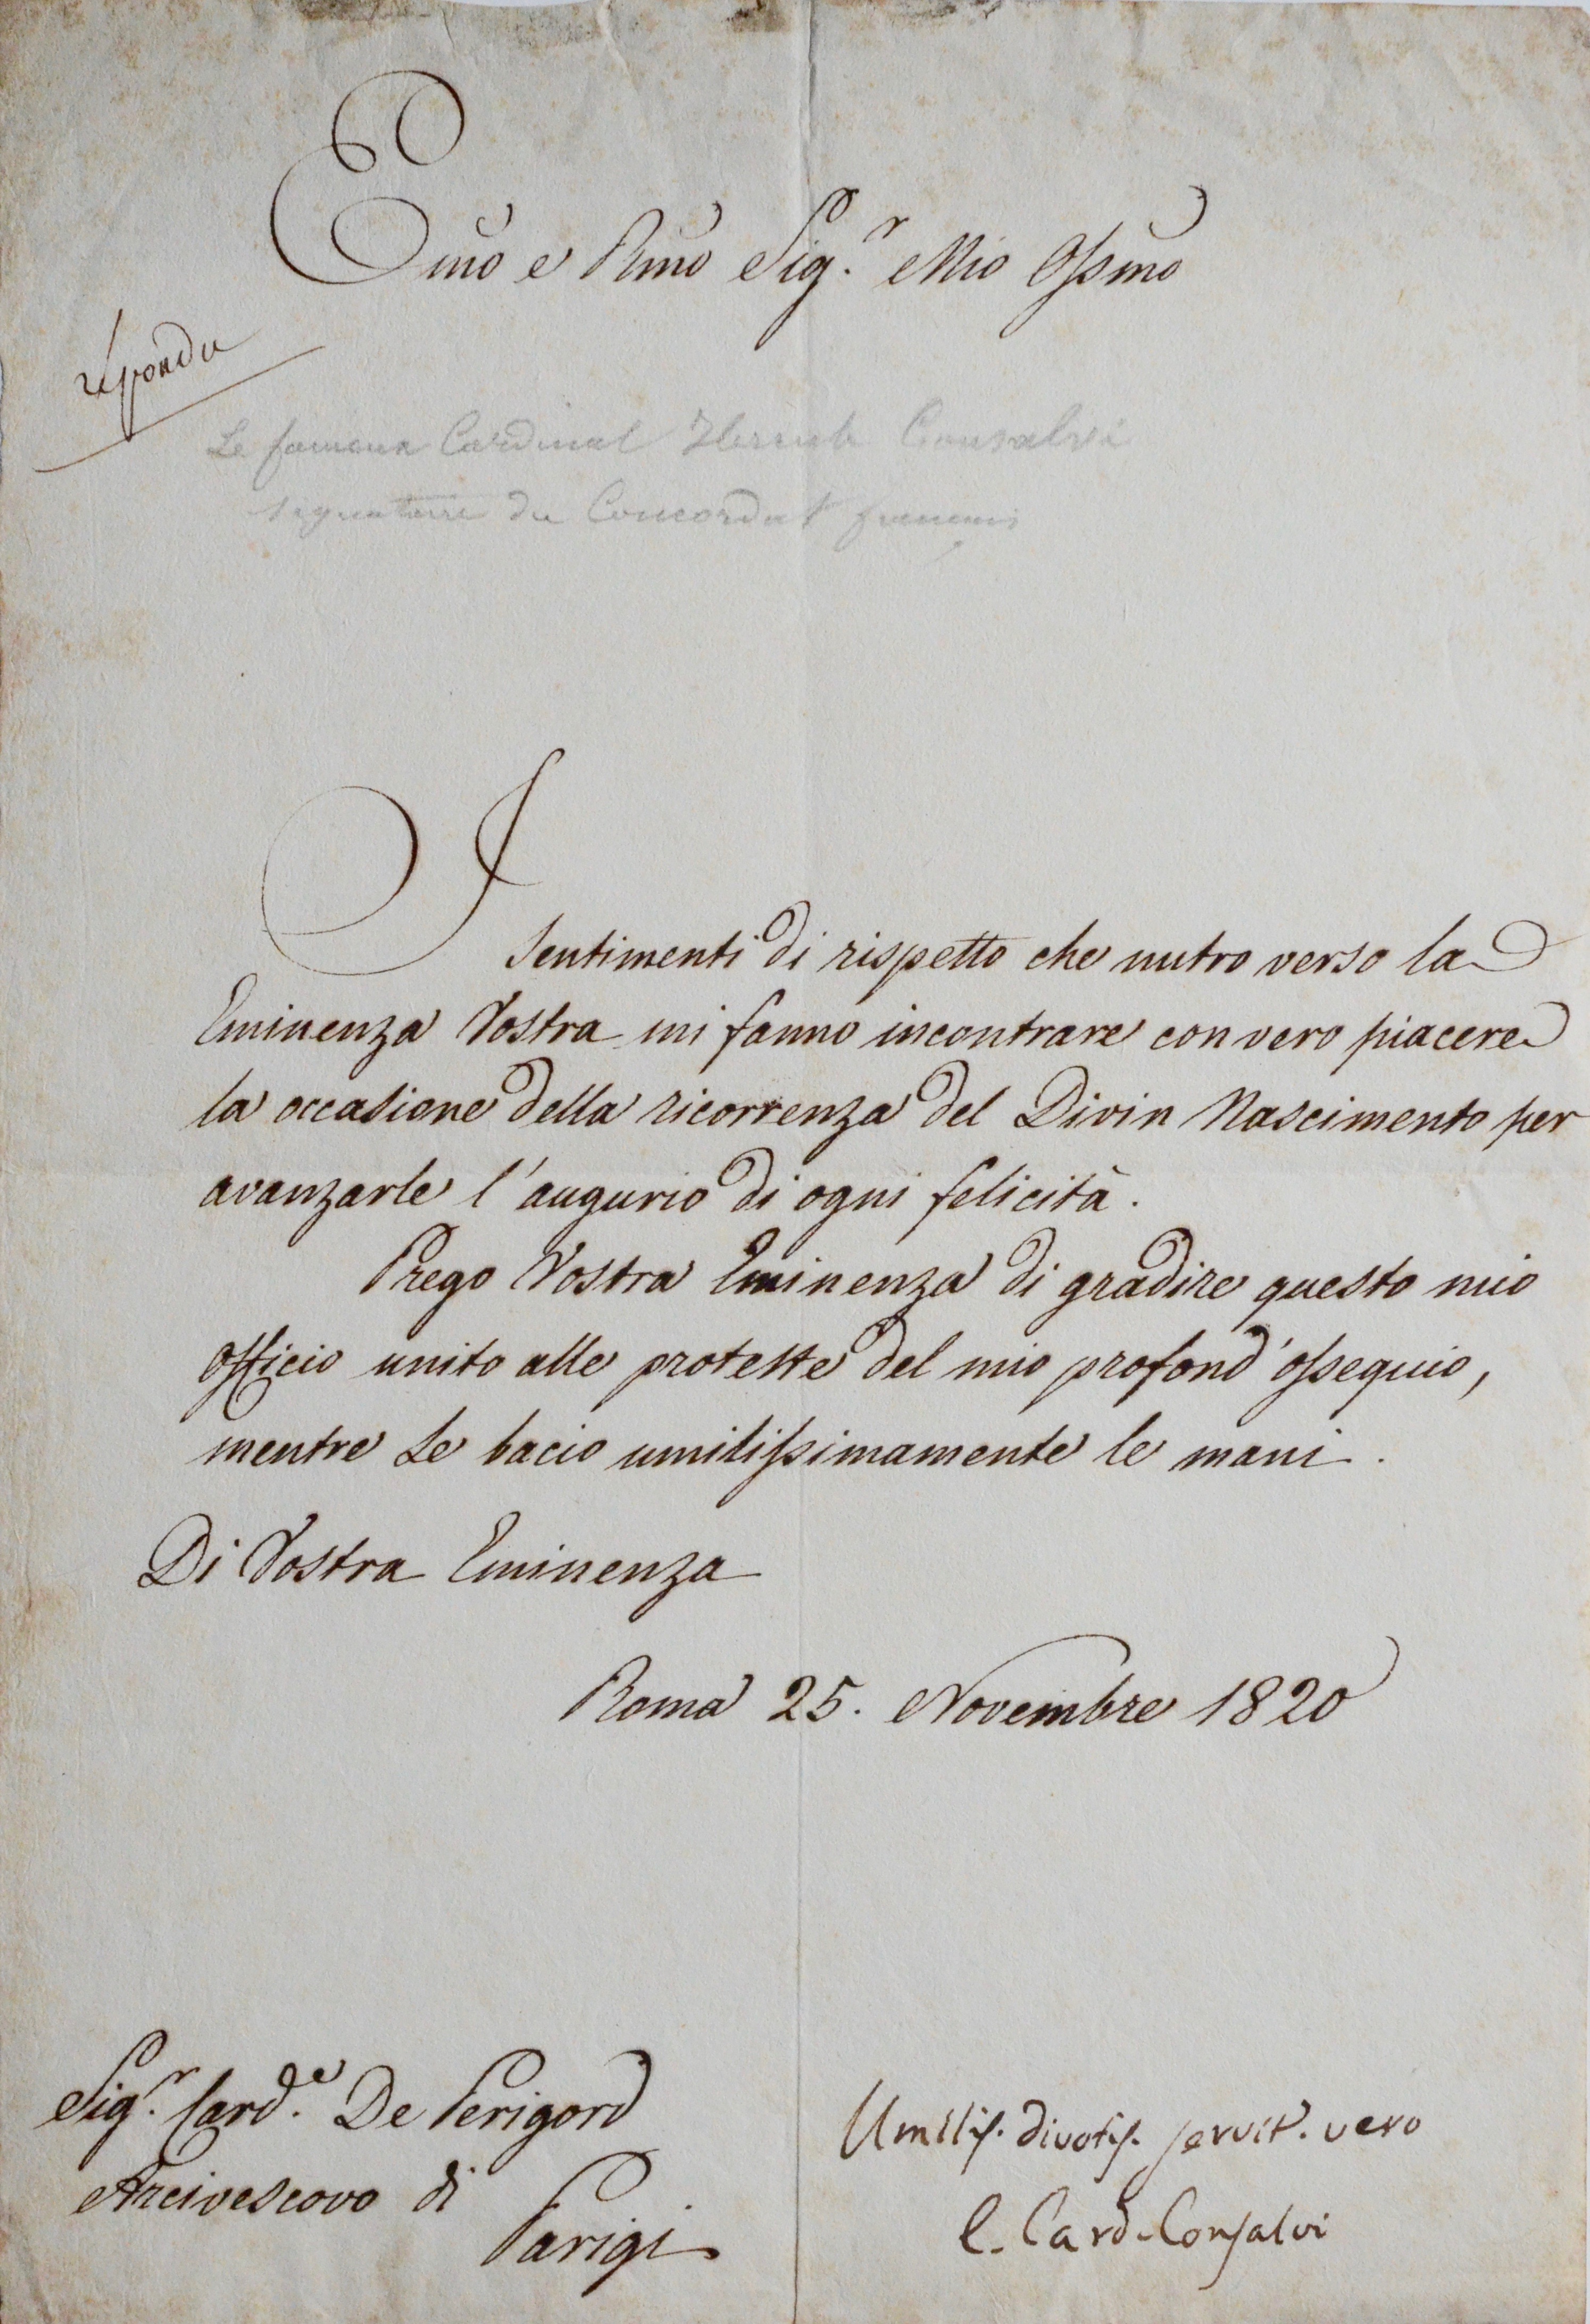 Em̃o e Rm̃o Sig.r Mio Ossm̃o
répondu
Le fameux Cardinal Hercule Consalvi
signataire du Concordat français
I Sentimenti di rispetto che nutro verso la
Eminenza Vostra mi fanno incontrare con vero piacere
la occasione della ricorrenza del Divin Nascimento per
avanzarle l'augurio di ogni felicità.
Prego Vostra Eminenza di gradire questo mio
officio unito alle proteste del mio profond'ossequio,
mentre Le bacio umilissimamente le mani.
Di Vostra Eminenza
Roma 25. Novembre 1820
Sig.r Card.e De Perigord
Arcivescovo di
Parigi
Umilis. divotis. servit. vero
E. Card. Consalvi